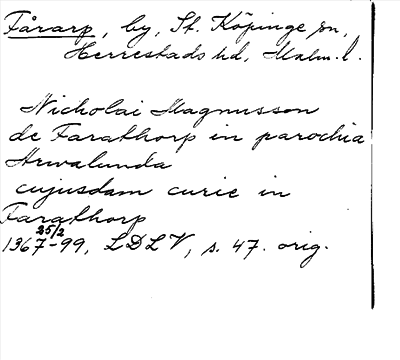 Fårarp, by, St. Köpinge sn,
Herrestads hd, Malm. l.
Nicholai Magnusson
de Farathorp in parochia
Arwalunda
cujusdam curie in
Farathorp
25/2
1367-99, LDLV, s. 47. orig.